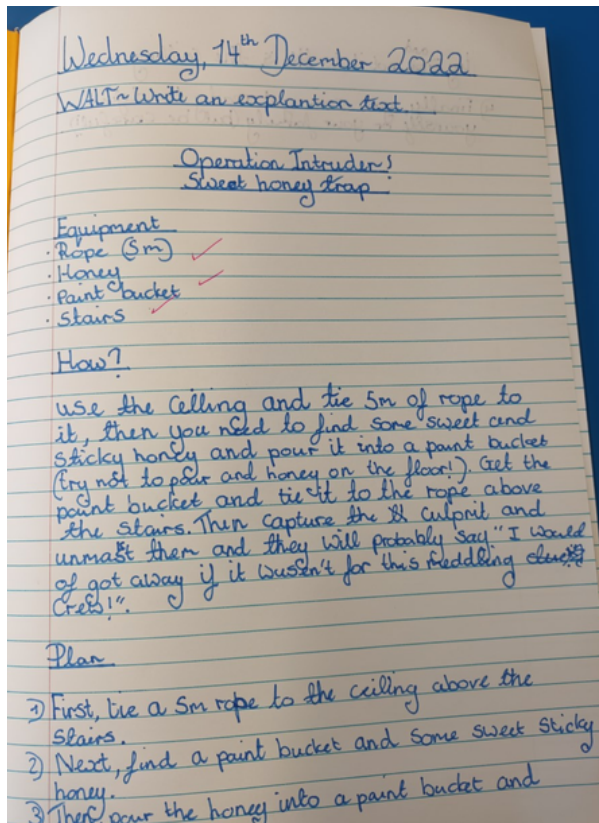 Wednesday, 14th December 2022
WALT~Write an explantion text
Operation Intruder!
Sweet honey trap
Equipment
· Rope (5m)
· Honey
· Paint bucket
· Stairs
How?
use the celling and tie 5m of rope to
it, then you need to find some sweet and
sticky honey and pour it into a paint bucket
(try not to pour and honey on the floor!). Get the
paint bucket and tie it to the rope above
the stairs. Then capture the culprit and
unmask them and they will probably say "I would
of got away if it wusen't for this meddling
Crew!".
Plan
1) First, tie a 5m rope to the ceiling above the
stairs.
2) Next, find a paint bucket and some sweet sticky
honey.
3) Then pour the honey into a paint bucket and